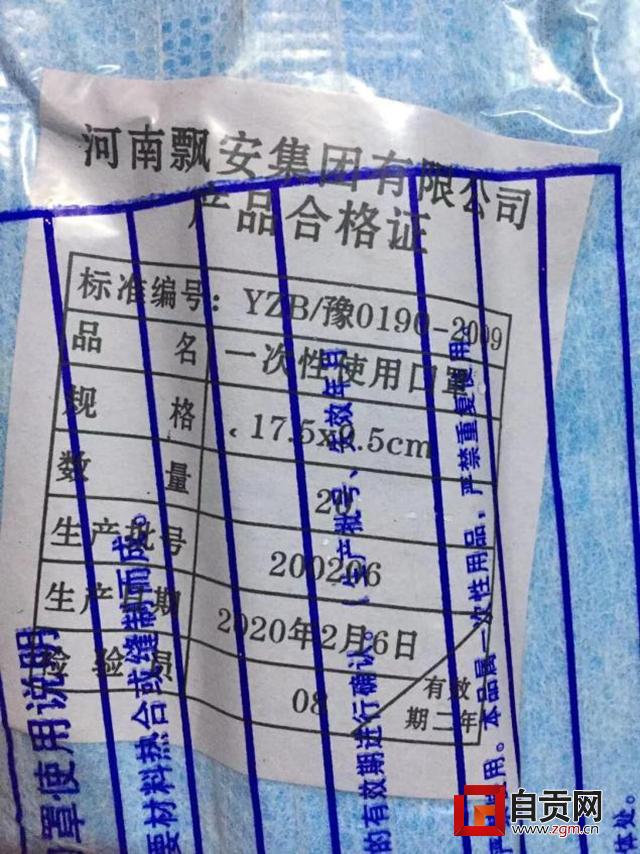 河南飘安集团有限公司
产品合格证
标准编号: YZB/豫0190-2009
品名 一次性使用口罩
规格 17.5x9.5cm
数量 20
生产批号 200206
生产日期 2020年2月6日
检验员 08
有效
期二年
罩使用说明
要材料热合或缝制而成。
的有效期进行确认。(生产批号、失效年月
使用。本品属一次性用品，严禁重复使用。
体处。
自贡网
www.zgm.cn